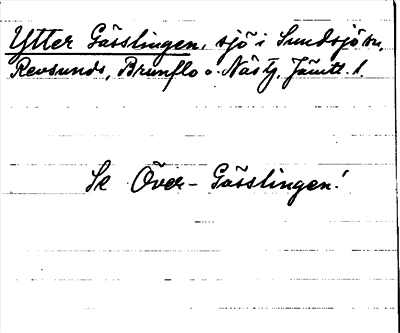 Ytter Gässlingen, sjö i Sundsjö sn,
Revsunds, Brunflo o. Näs tg, Jämtl. l.
Se Över-Gässlingen!